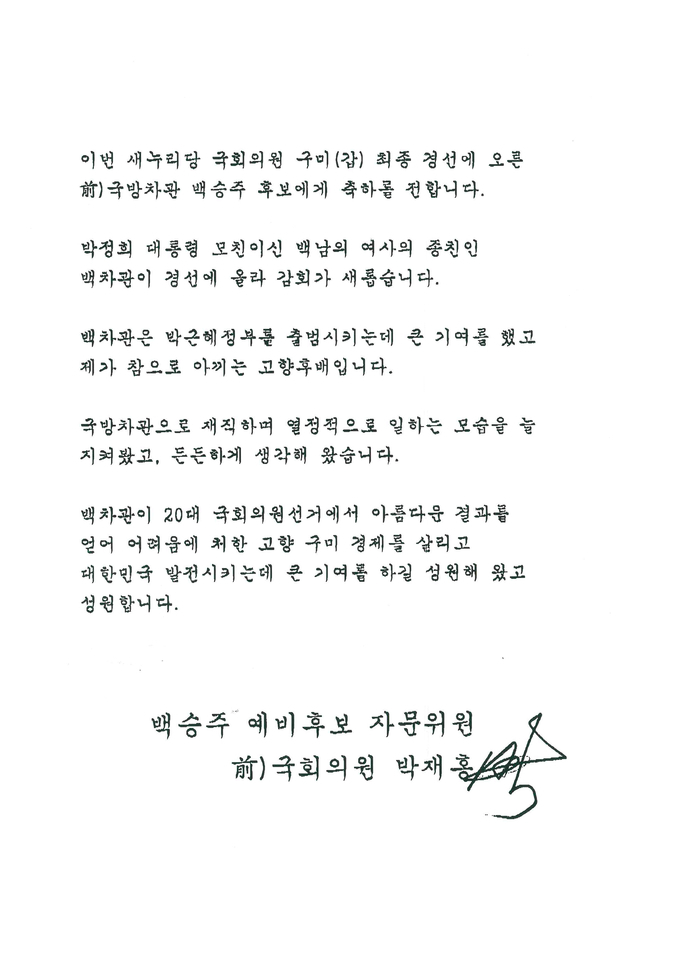 이번 새누리당 국회의원 구미(갑) 최종 경선에 오른
前)국방차관 백승주 후보에게 축하를 전합니다.
박정희 대통령 모친이신 백남의 여사의 종친인
백차관이 경선에 올라 감회가 새롭습니다.
백차관은 박근혜정부를 출범시키는데 큰 기여를 했고
제가 참으로 아끼는 고향후배입니다.
국방차관으로 재직하며 열정적으로 일하는 모습을 늘
지켜봤고, 든든하게 생각해 왔습니다.
백차관이 20대 국회의원선거에서 아름다운 결과를
얻어 어려움에 처한 고향 구미 경제를 살리고
대한민국 발전시키는데 큰 기여를 하길 성원해 왔고
성원합니다.
백승주 예비후보 자문위원
前)국회의원 박재홍